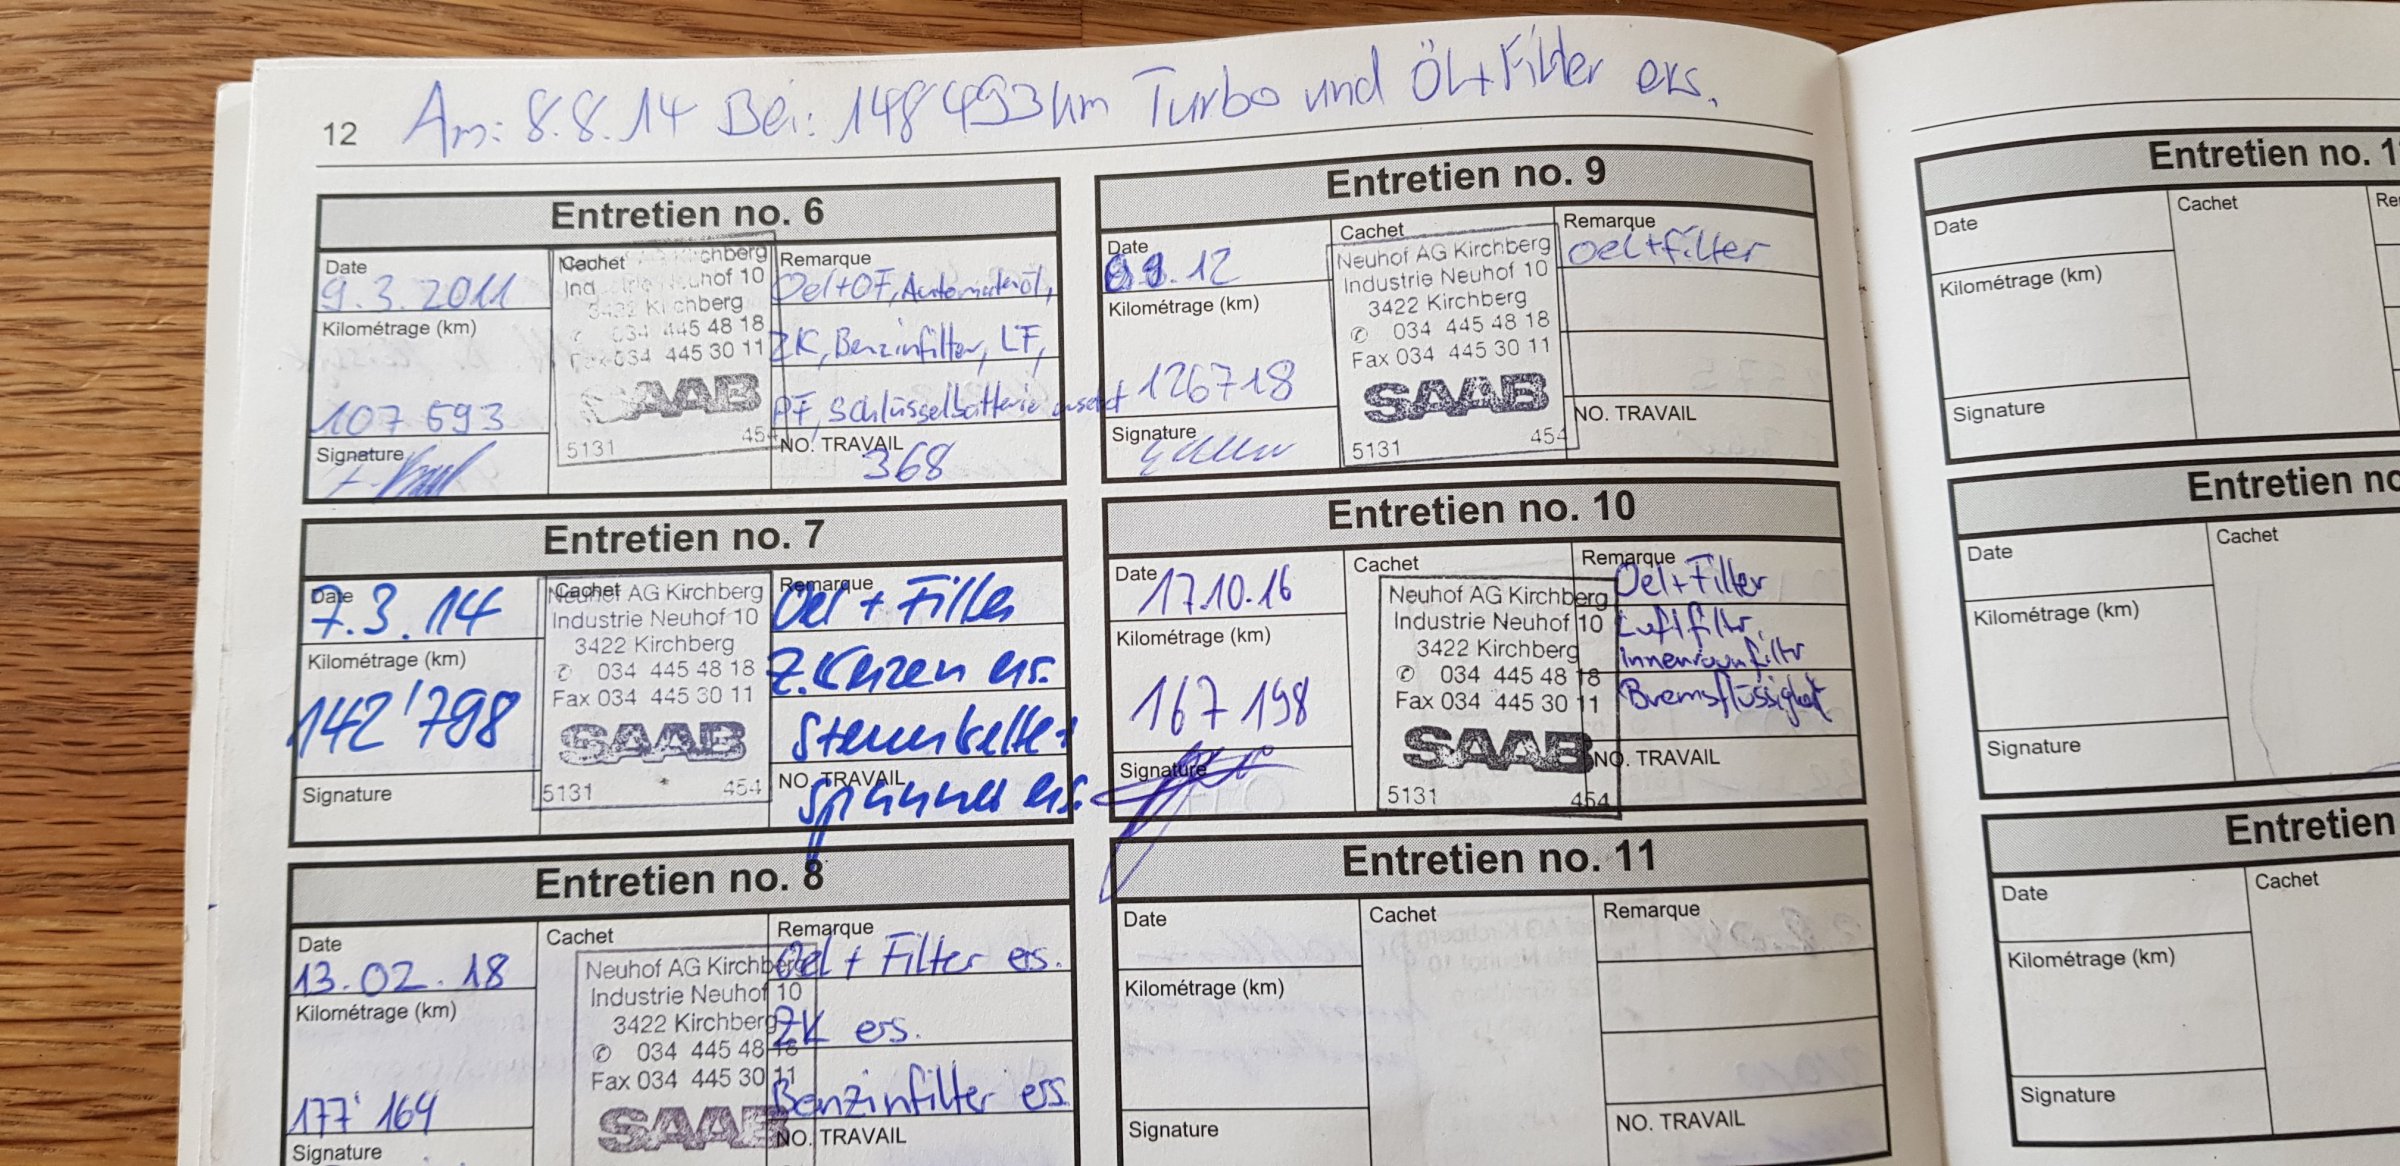 12 Am: 8.8.14 Bei: 148 493 km Turbo und Öl+Filter ers.
Entretien no. 6
Date
9.3.2011
Kilométrage (km)
107 693
Signature
Cachet
Kirchberg
Neuhof 10
3422 Kirchberg
✆ 034 445 48 18
Fax 034 445 30 11
SAAB
5131 454
Remarque
Oel+OF, Automatenöl,
ZK, Benzinfilter, LF,
PF, Schlüsselbatterie ersetzt
NO. TRAVAIL
368
Entretien no. 7
Date
7.3.14
Kilométrage (km)
142'798
Signature
Cachet
Neuhof AG Kirchberg
Industrie Neuhof 10
3422 Kirchberg
✆ 034 445 48 18
Fax 034 445 30 11
SAAB
5131 454
Remarque
Oel + Filter
Z.Kerzen ers.
Steuerkette+
NO. TRAVAIL
Spanner ers.
Entretien no. 8
Date
13.02.18
Kilométrage (km)
177'164
Signature
Cachet
Neuhof AG Kirchberg
Industrie Neuhof 10
3422 Kirchberg
✆ 034 445 48 18
Fax 034 445 30 11
SAAB
Remarque
Oel + Filter ers.
ZK ers.
Benzinfilter ers
NO. TRAVAIL
Entretien no. 9
Date
12
Kilométrage (km)
126718
Signature
Cachet
Neuhof AG Kirchberg
Industrie Neuhof 10
3422 Kirchberg
✆ 034 445 48 18
Fax 034 445 30 11
SAAB
5131 454
Remarque
Oel+filter
NO. TRAVAIL
Entretien no. 10
Date
17.10.16
Kilométrage (km)
167 198
Signature
Cachet
Neuhof AG Kirchberg
Industrie Neuhof 10
3422 Kirchberg
✆ 034 445 48 18
Fax 034 445 30 11
SAAB
5131 454
Remarque
Oel+Filter
Luftfiltr,
Innenraumfiltr
Bremsflüssigkeit
NO. TRAVAIL
Entretien no. 11
Date
Kilométrage (km)
Signature
Cachet
Remarque
NO. TRAVAIL
Entretien no. 1
Date
Kilométrage (km)
Signature
Cachet
Re
Entretien no
Date
Kilométrage (km)
Signature
Cachet
Entretien
Date
Kilométrage (km)
Signature
Cachet